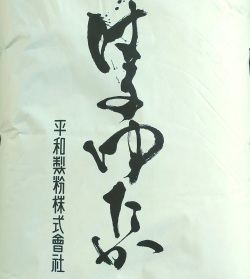 はるゆたか
平和製粉株式會社